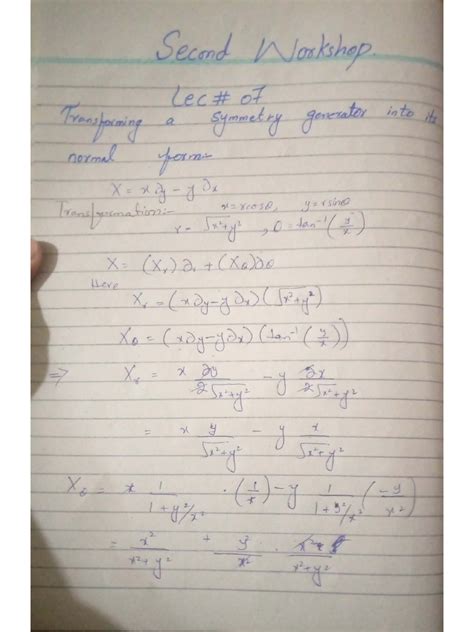 Second Workshop.
Lec# 07
Transforming a symmetry generator into its
normal form:-
X = x∂y - y∂x
Transformation:- x = rcosθ, y = rsinθ
r = √x²+y² , θ = tan⁻¹(y/x)
X = (Xr)∂r + (Xθ)∂θ
Here
Xr = (x∂y - y∂x)(√x²+y²)
Xθ = (x∂y - y∂x)(tan⁻¹(y/x))
⇒ Xr = x 2y/2√x²+y² - y 2x/2√x²+y²
= x y/√x²+y² - y x/√x²+y²
Xθ = x 1/1+y²/x² · (1/x) - y 1/1+y²/x² (-y/x²)
= x²/x²+y² + y²/x² · x²/x²+y²